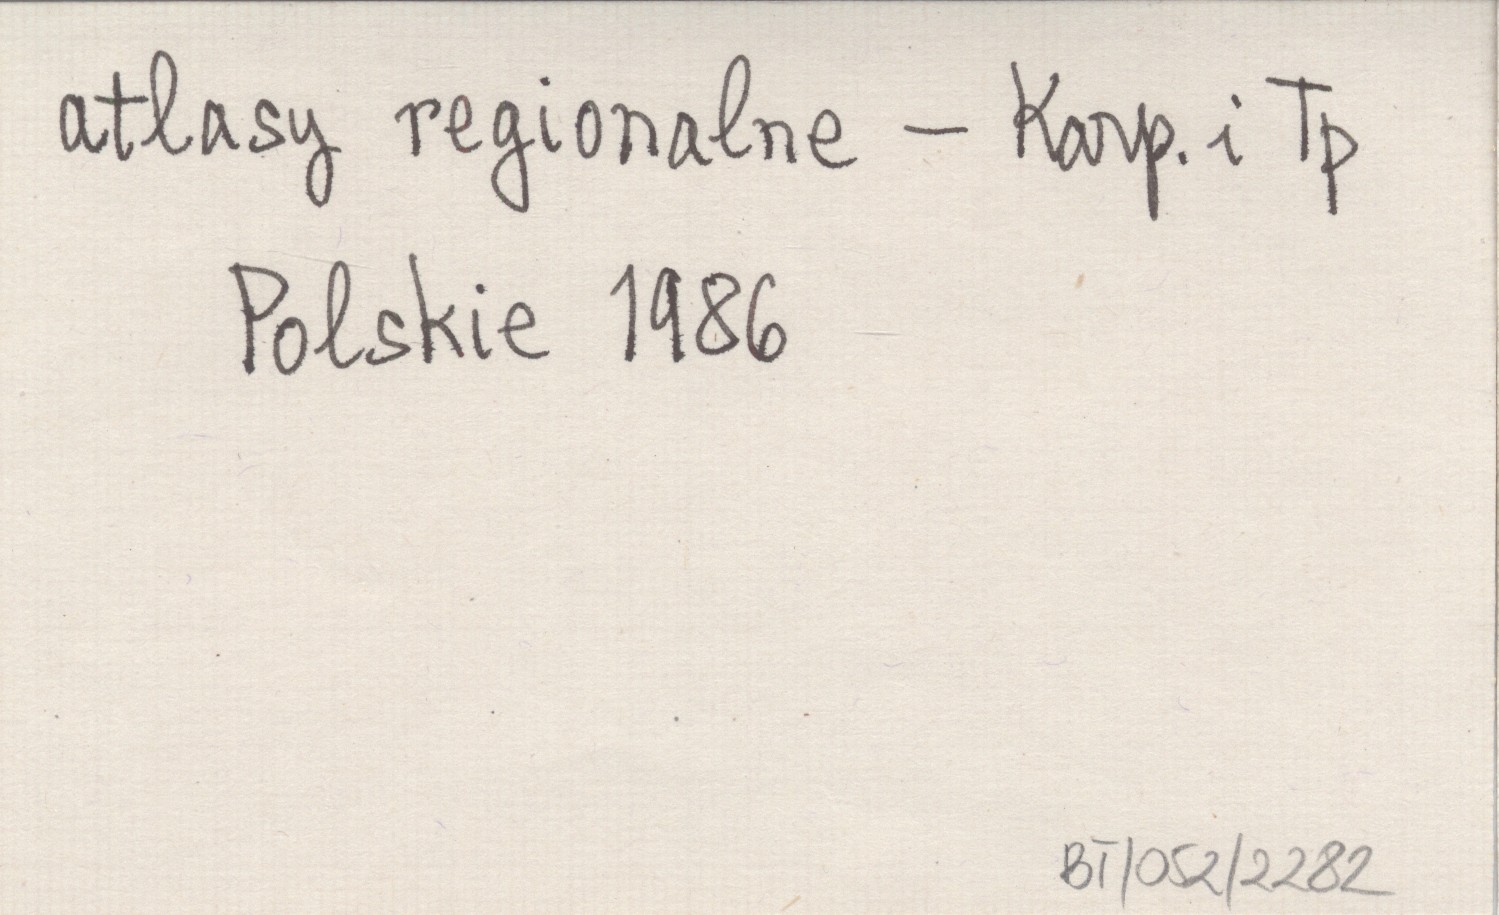 atlasy regionalne - Karp. i Tp
Polskie 1986
BT/052/2282